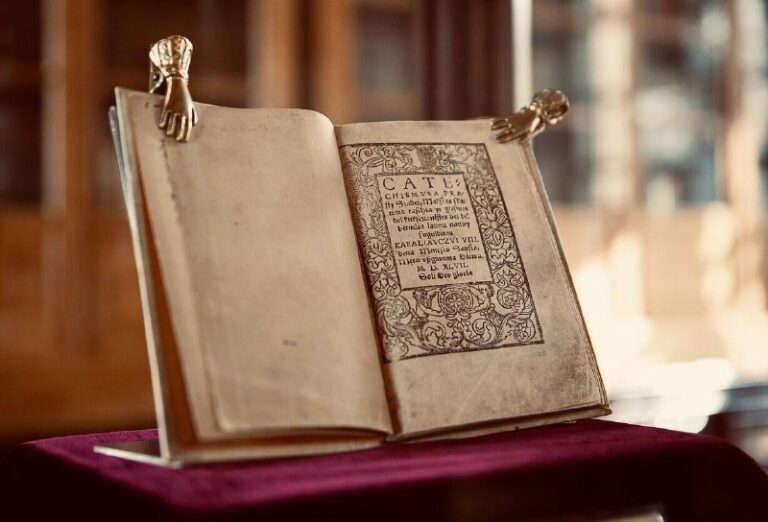 CATE=
CHISMVSA PRA
sty Szadei, Makslas skai
tima raschta yr giesmes
del kriksczianistes bei del
berneliu iaunu nauiey
sugulditas
KARALIAVCZVI VIII.
dena Meneses Sausia,
Metu vßgimima Diewa.
M. D. XLVII.
Soli Deo gloria